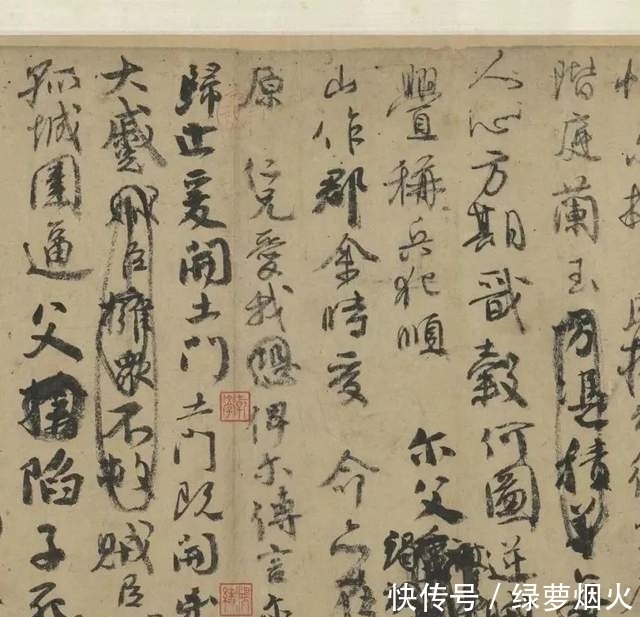 階庭蘭玉方憑積善
人心方期戩穀何圖逆
釁稱兵犯順 尔父
山作郡余時受 命亦在
原 仁兄愛我恐俾尔傳言尔
歸止爰開土門土門既開凶
大蹙賊臣擁衆不救賊臣
孤城圍逼父擒陷子死
快传号／绿萝烟火